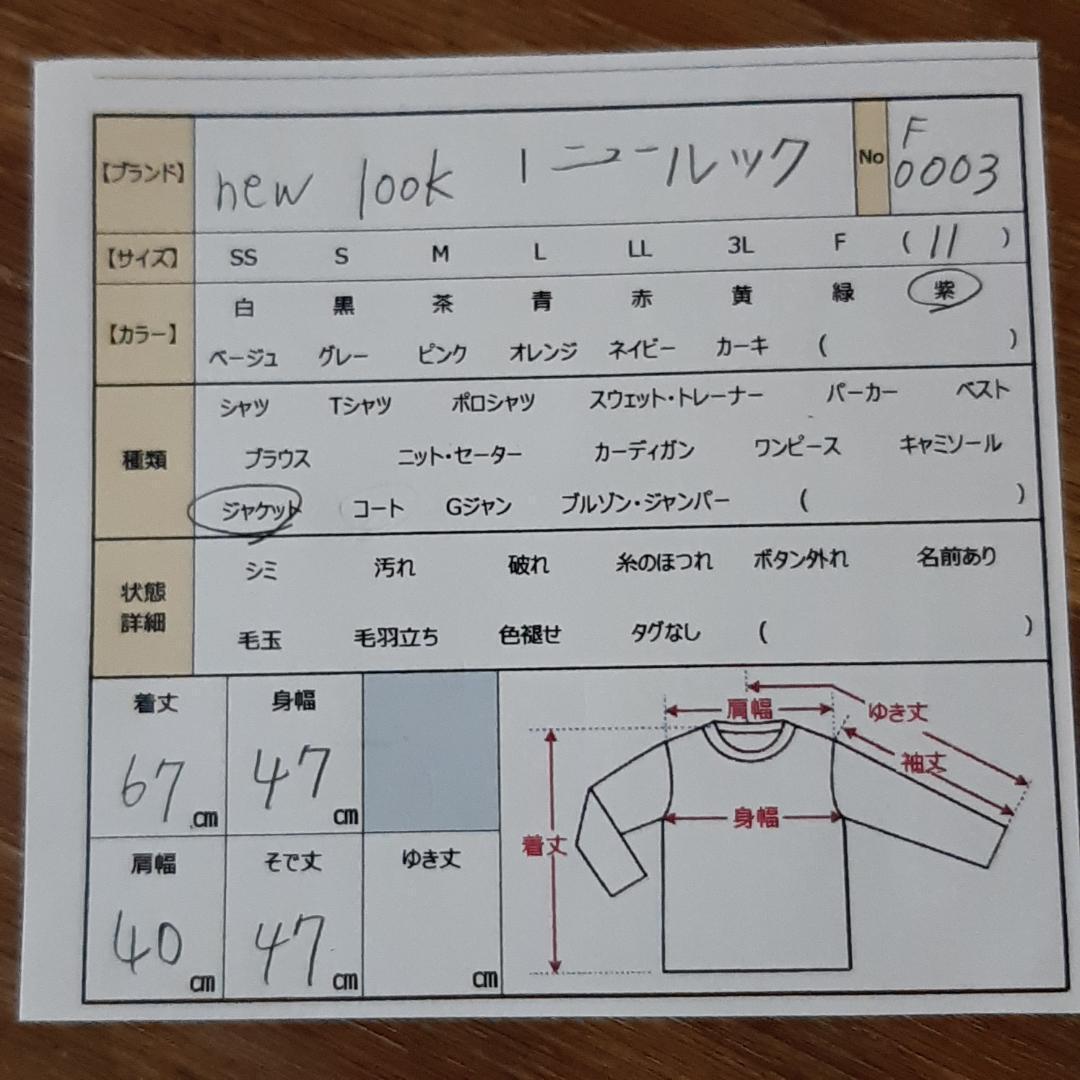 【ブランド】 new look | ニュールック No F
0003
【サイズ】 SS S M L LL 3L F ( 11 )
【カラー】 白 黒 茶 青 赤 黄 緑 紫
ベージュ グレー ピンク オレンジ ネイビー カーキ ( )
種類 シャツ Tシャツ ポロシャツ スウェット・トレーナー パーカー ベスト
ブラウス ニット・セーター カーディガン ワンピース キャミソール
ジャケット コート Gジャン ブルゾン・ジャンパー ( )
状態
詳細
シミ 汚れ 破れ 糸のほつれ ボタン外れ 名前あり
毛玉 毛羽立ち 色褪せ タグなし ( )
着丈 身幅
67 cm 47 cm
肩幅 そで丈 ゆき丈
40 cm 47 cm cm
肩幅 ゆき丈
袖丈
身幅
着丈